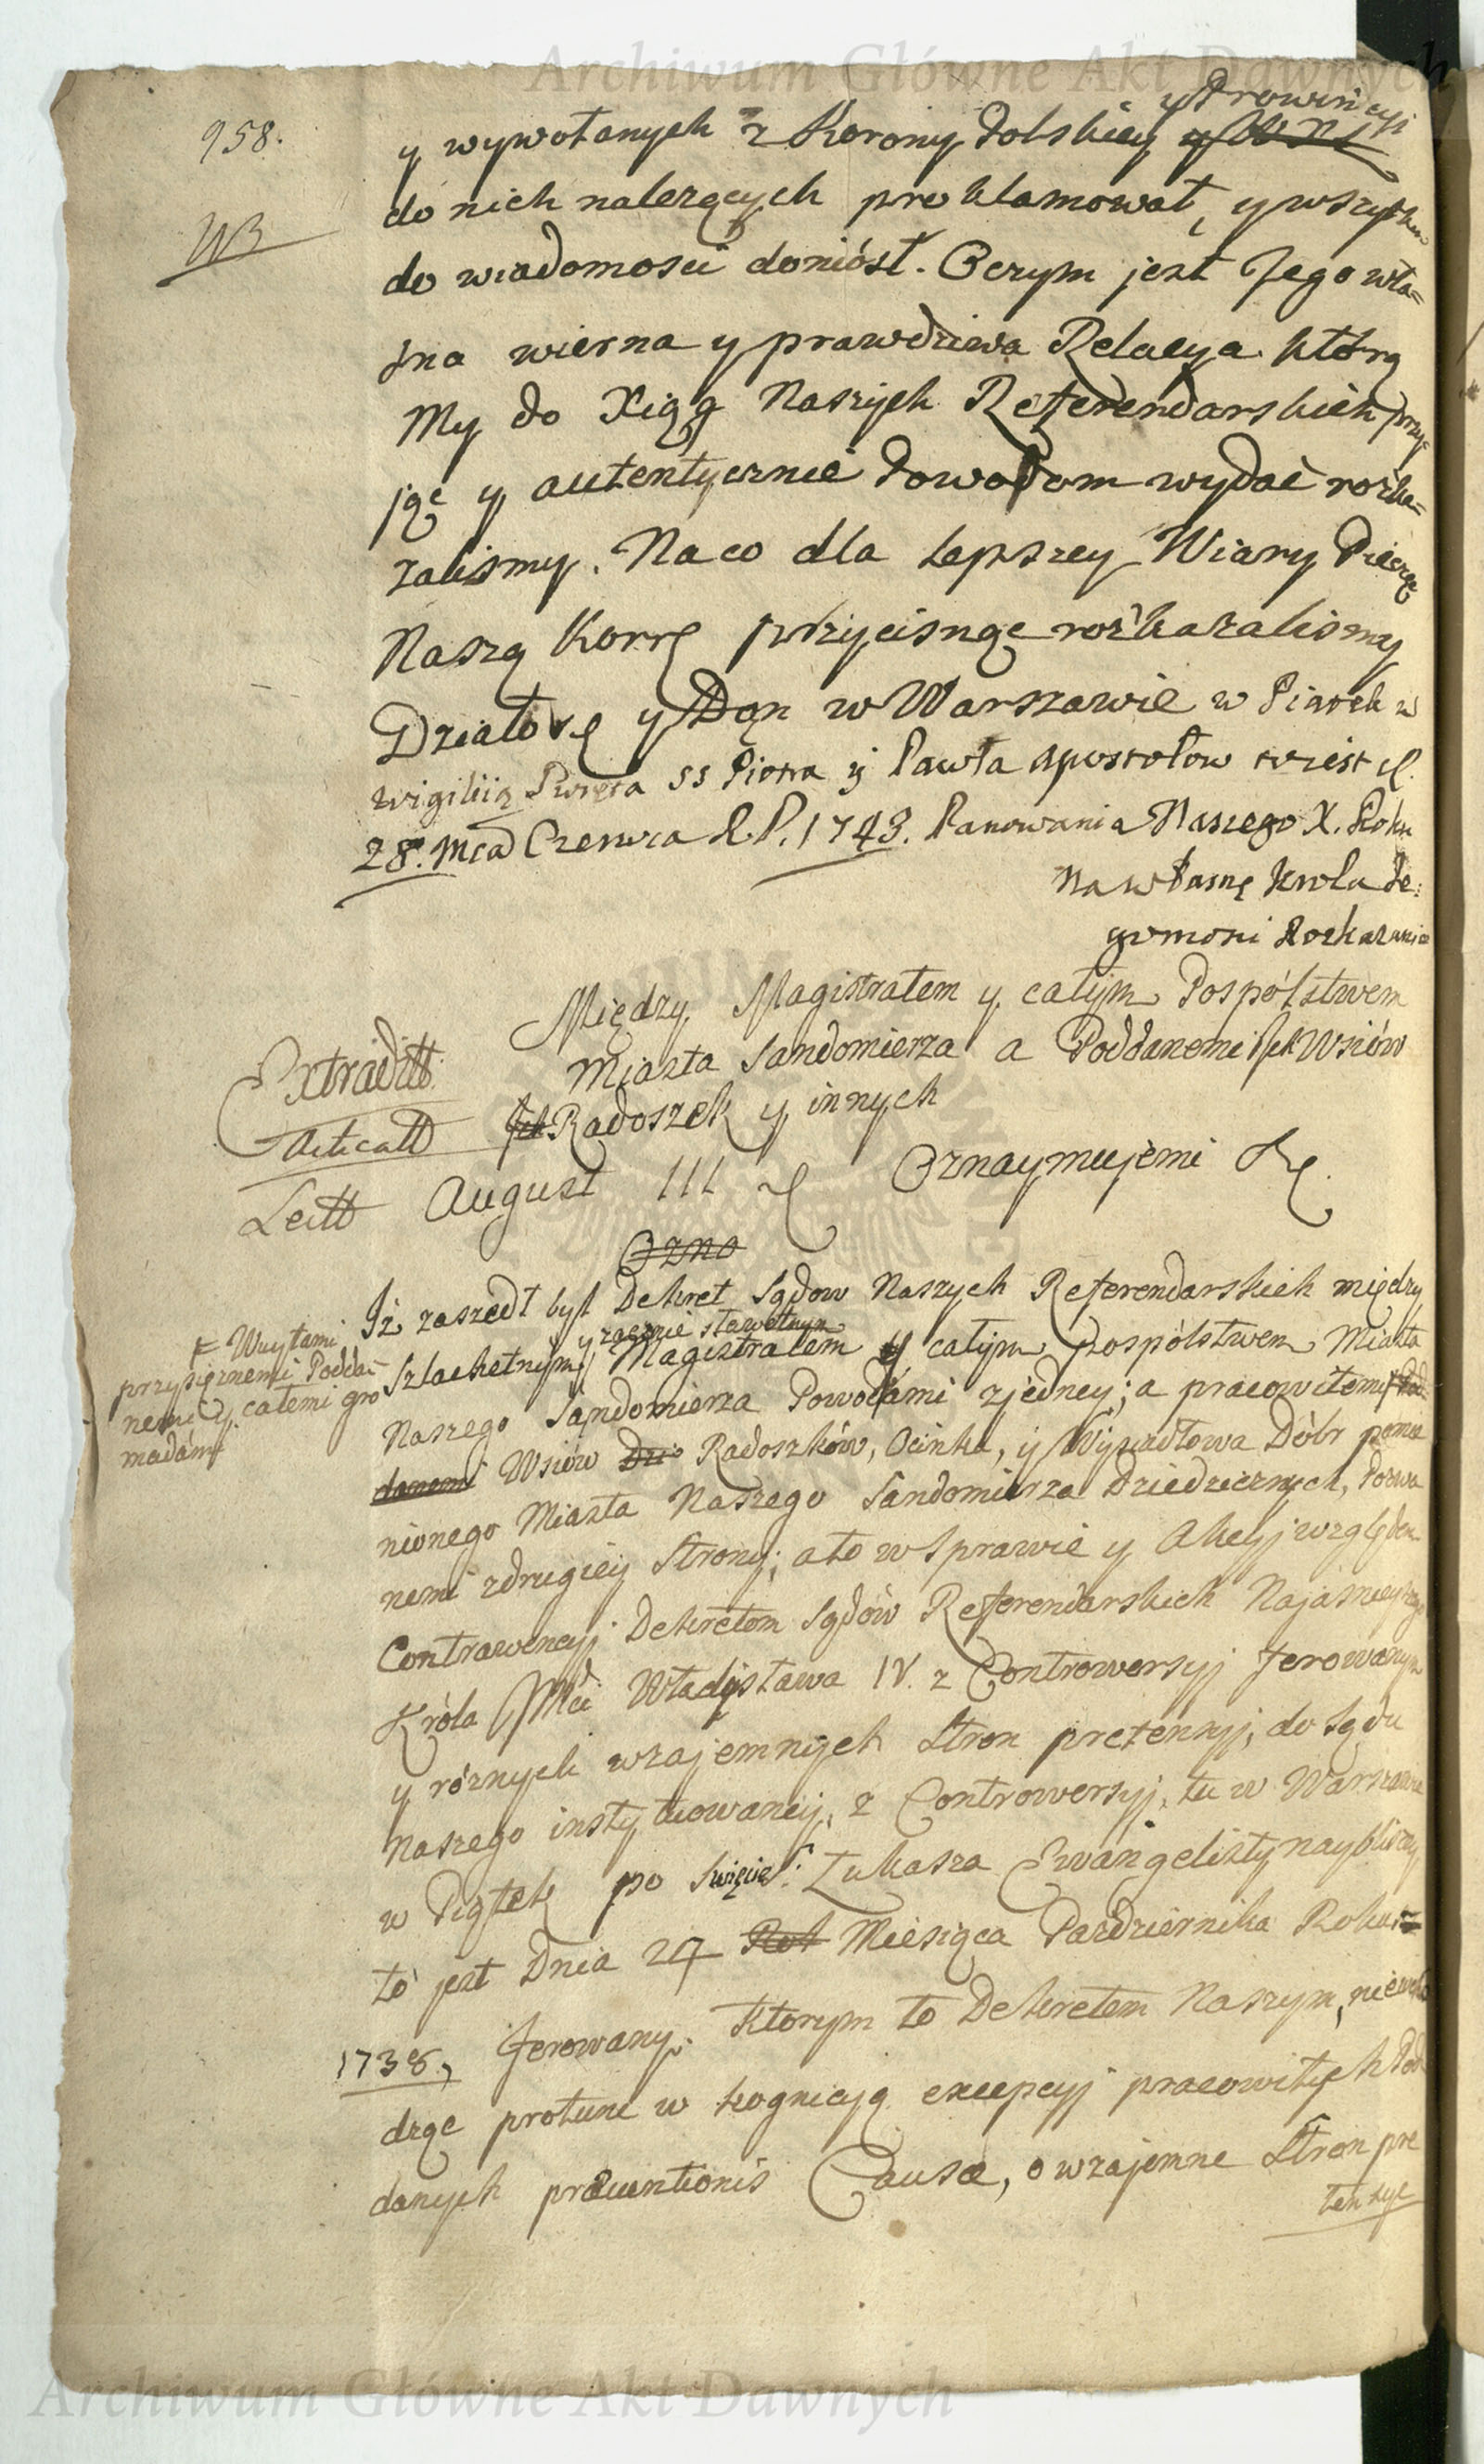 Archiwum Główne Akt Dawnych
958.
y Prowincyi
y wywołanych z Korony Polskiey
do nich nalezących proklamował, y wszytkim
WB
do wiadomosci doniósł. O czym jest Jego wła=
sna wierna y prawdziwa Relacya którą
My do Xiąg Naszych Referendarskich przy=
jąć y autentycznie Powodom wydać rozka=
zalismy. Na co dla lepszey Wiary Pieczęć
Naszą Korrę przycisnąć rozkazalismy
Działo się y Dan w Warszawie w Piątek w
wigilią Swięta SS Piotra y Pawła Apostołow to iest d.
28. Mca Czerwca R.P. 1743. Panowania Naszego X. Roku
Na własne Krola Je:
gomosci Rozkazanie
Między Magistratem y całym Pospólstwem
Miasta Sandomierza a Poddanemi Wsiów
Extraditt.
Radoszek y innych
Lectt
August III Oznaymujemi
Ozna
Iż zaszedł był Dekret Sądow Naszych Referendarskich między
y zacnie sławetnym
Szlachetnym Magistratem y całym pospólstwem Miasta
≠ Wuytami
przysięznemi Podda=
nemi y całemi gro
madámi
Naszego Sandomierza Powodámi zjedney; a pracowitemi Pod
danemi Wsiów Radoszków, Ocinka, y Dóbr pomie
nionego Miasta Naszego Sandomierza Dziedzicznych, Pozwa
nemi zdrugiey Strony; a to w Sprawie y Akcyj względem
Contrawencyj Dekretom Sądów Referendarskich Najasnieyszego
Króla Jmći Władysława IV. z Controwersyj ferowanym
y róznych wzajemnych Stron pretensyj, do Sądu
Naszego instytuowaney, z Controwersyj, tu w Warszawie
w Piątek po Święcie S. Łukasza Ewangelisty naybliszy
to jest Dnia 24 Rok Miesiąca Pazdziernika Roku
1738, ferowany. Ktorym to Dekretem Naszym, niewcho
dząc protunc w kognicyą excepcyj pracowitych Pod
danych Causæ, o wzajemne Stron pre
tensye
Archiwum Główne Akt Dawnych